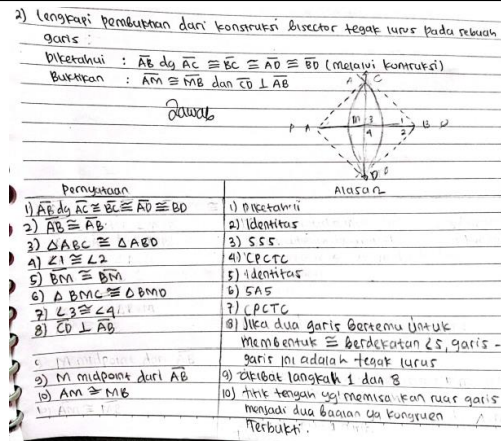 2) Lengkapi pembuktian dari konstruksi bisector tegak lurus pada sebuah
garis :
Diketahui : AB dg AC ≅ BC ≅ AD ≅ BD (melalui kontruksi)
Buktikan : AM ≅ MB dan CD ⊥ AB
Jawab
A C
P A M 3 1 B
4 2
D
Pernyataan Alasan
1) AB dg AC ≅ BC ≅ AD ≅ BD 1) Diketahui
2) AB ≅ AB 2) Identitas
3) △ABC ≅ △ABD 3) SSS
4) ∠1 ≅ ∠2 4) CPCTC
5) BM ≅ BM 5) Identitas
6) △ BMC ≅ △ BMD 6) SAS
7) ∠3 ≅ ∠4 7) CPCTC
8) CD ⊥ AB 8) Jika dua garis bertemu untuk
membentuk ≅ berdekatan ∠s, garis-
garis ini adalah tegak lurus
9) M midpoint dari AB 9) akibat langkah 1 dan 8
10) AM ≅ MB 10) titik tengah yg memisahkan ruas garis
menjadi dua bagian yg kongruen
Terbukti.